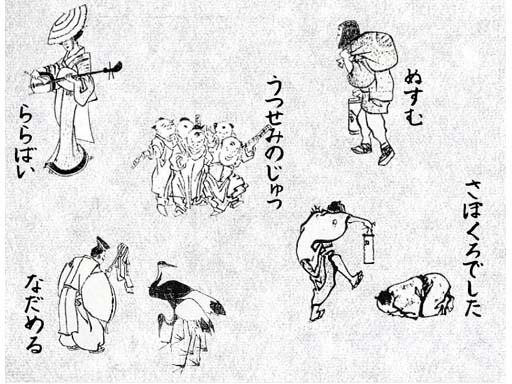 ぬすむ
うつせみのじゅつ
ららばい
さぼくろでした
なだめる